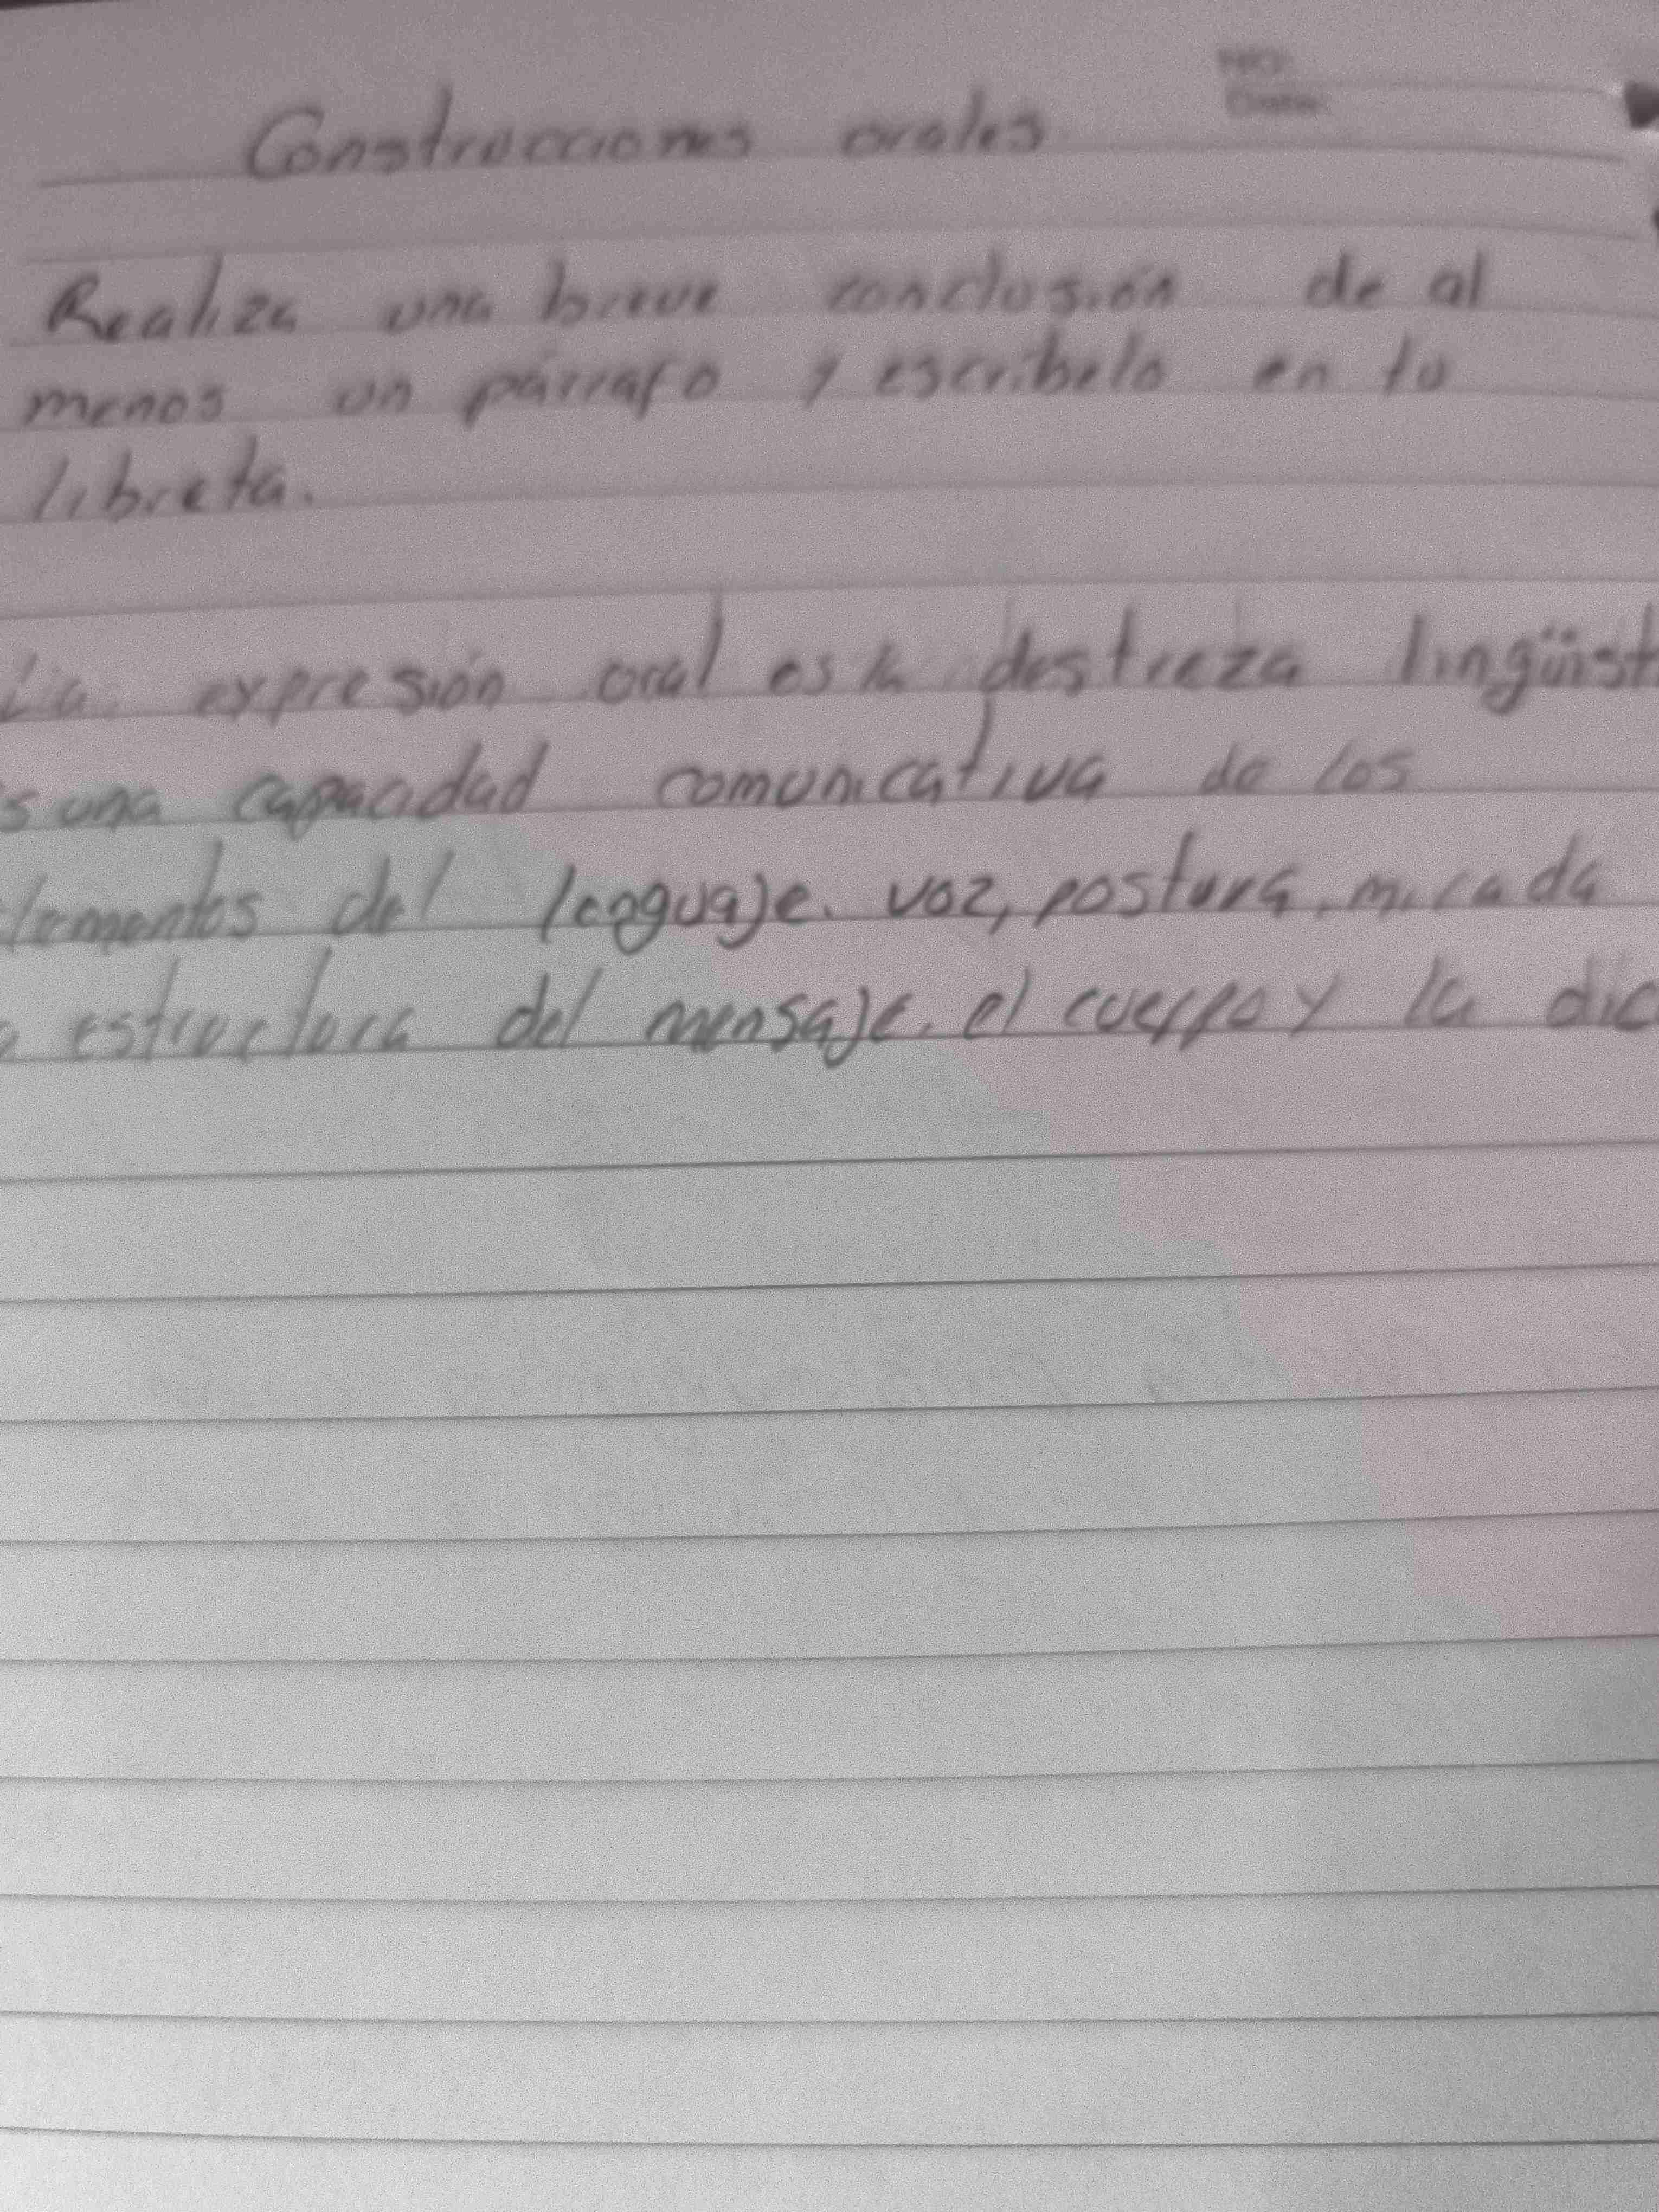 NO.
Date:
Construcciones orales
Realiza una breve conclusión de al
menos un párrafo y escríbelo en tu
libreta.
La expresión oral es la destreza lingüist
s una capacidad comunicativa de los
lementos del lenguaje. voz, postura, mirada
estructura del mensaje, el cuerpo y la dic